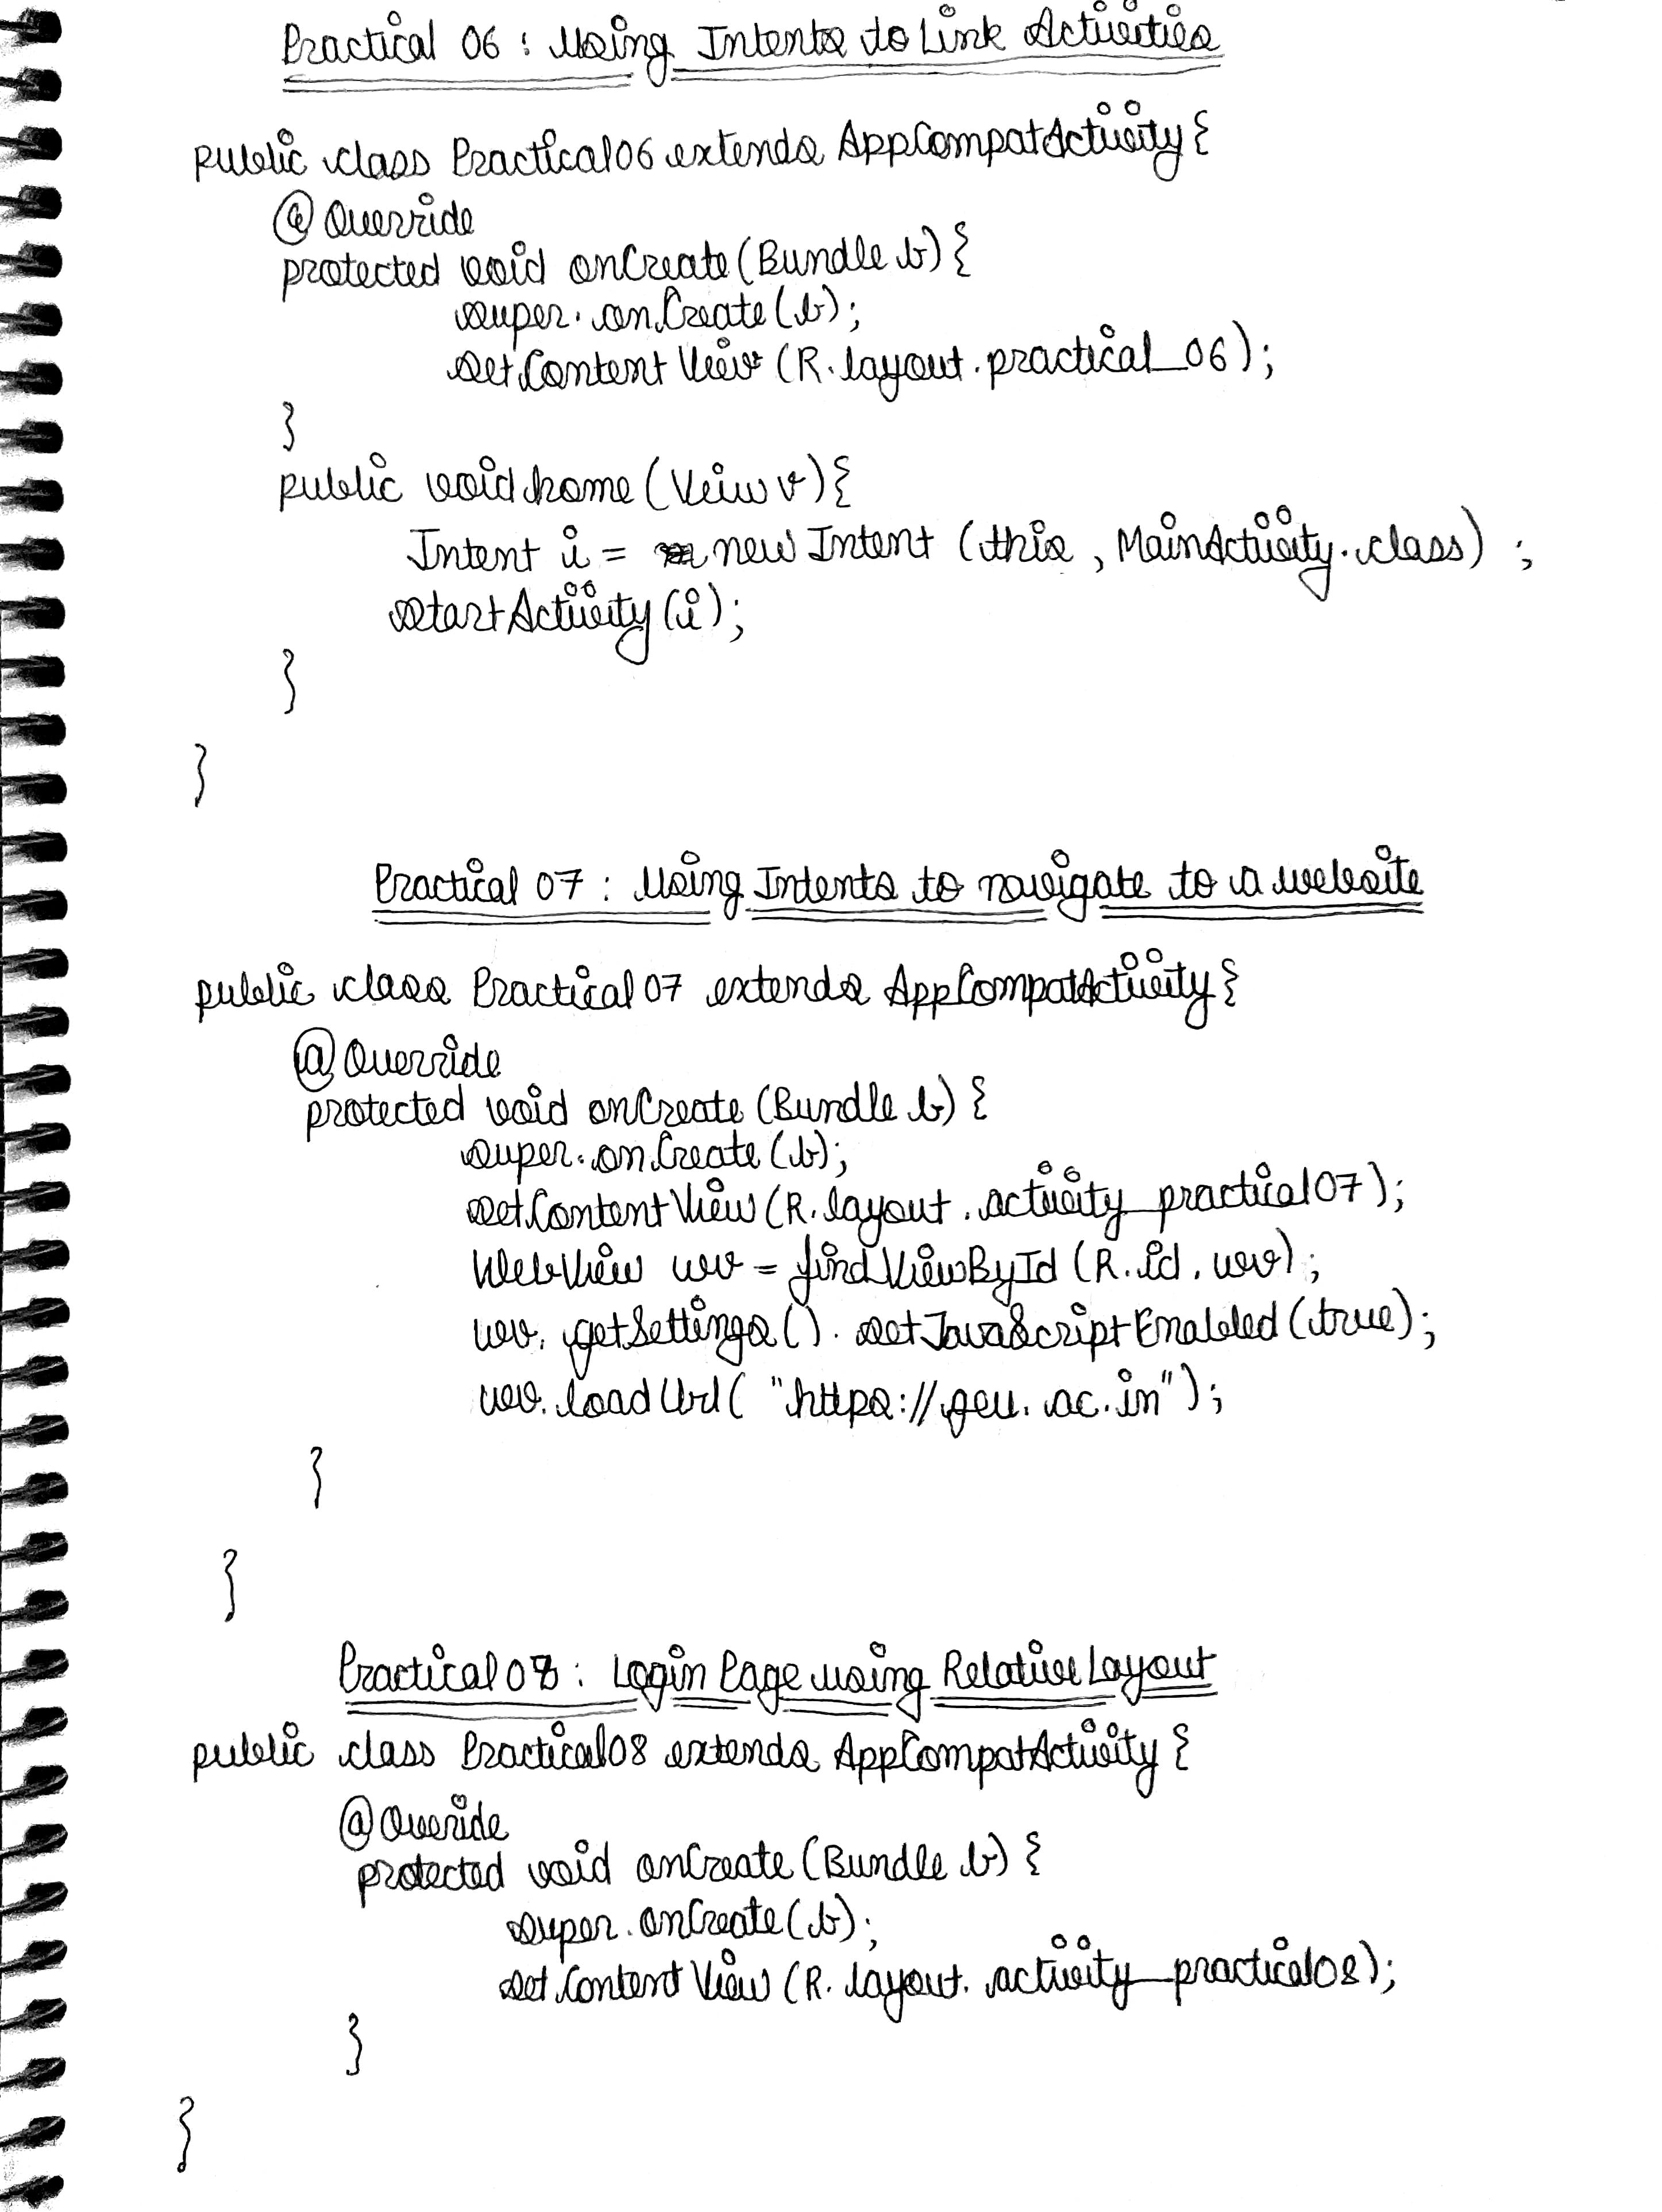 Practical 06 : Using Intents to Link Activities
public class Practical06 extends AppCompatActivity{
@Override
protected void onCreate(Bundle b){
super.onCreate(b);
setContentView(R.layout.practical_06);
}
public void home(Veiw v){
Intent i = new Intent (this, MainActivity.class) ;
startActivity(i);
}
}
Practical 07 : Using Intents to navigate to a website
public class Practical07 extends AppCompatActivity{
@Override
protected void onCreate(Bundle b){
super.onCreate(b);
setContentView(R.layout.activity_practical07);
WebView wv = findViewById(R.id.wv);
wv.getSettings().setJavaScriptEnabled(true);
wv.loadUrl("https://geu.ac.in");
}
}
Practical 08 : Login Page using Relative Layout
public class Practical08 extends AppCompatActivity{
@Override
protected void onCreate(Bundle b){
super.onCreate(b);
setContentView(R.layout.activity_practical08);
}
}